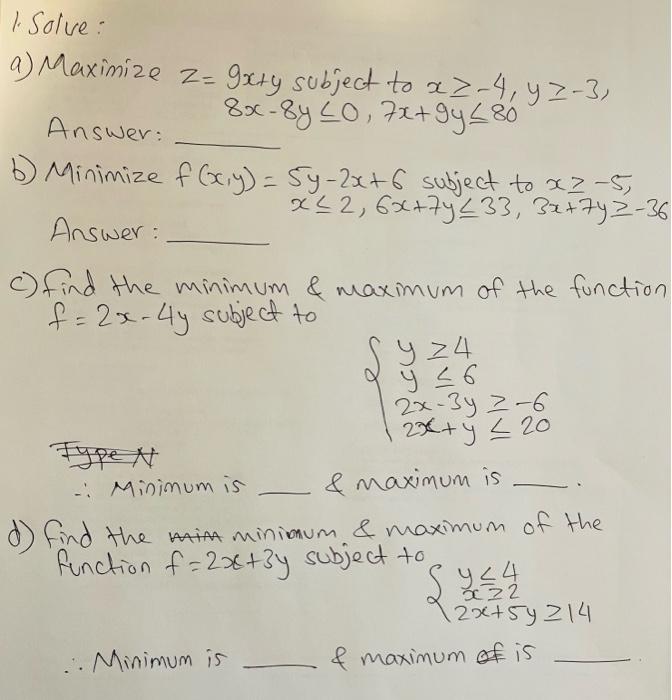 1. Solve:
a) Maximize z = 9x+y subject to x ≥ -4, y ≥ -3,
8x - 8y ≤ 0, 7x + 9y ≤ 80
Answer: ______
b) Minimize f(x,y) = 5y - 2x + 6 subject to x ≥ -5,
x ≤ 2, 6x + 7y ≤ 33, 3x + 7y ≥ -36
Answer: ______
c) find the minimum & maximum of the function
f = 2x - 4y subject to
{ y ≥ 4
y ≤ 6
2x - 3y ≥ -6
2x + y ≤ 20
Type N
∴ Minimum is ____ & maximum is ____.
d) find the mim minimum & maximum of the
function f = 2x + 3y subject to
{ y ≤ 4
x ≥ 2
2x + 5y ≥ 14
∴ Minimum is ____ & maximum of is ____.